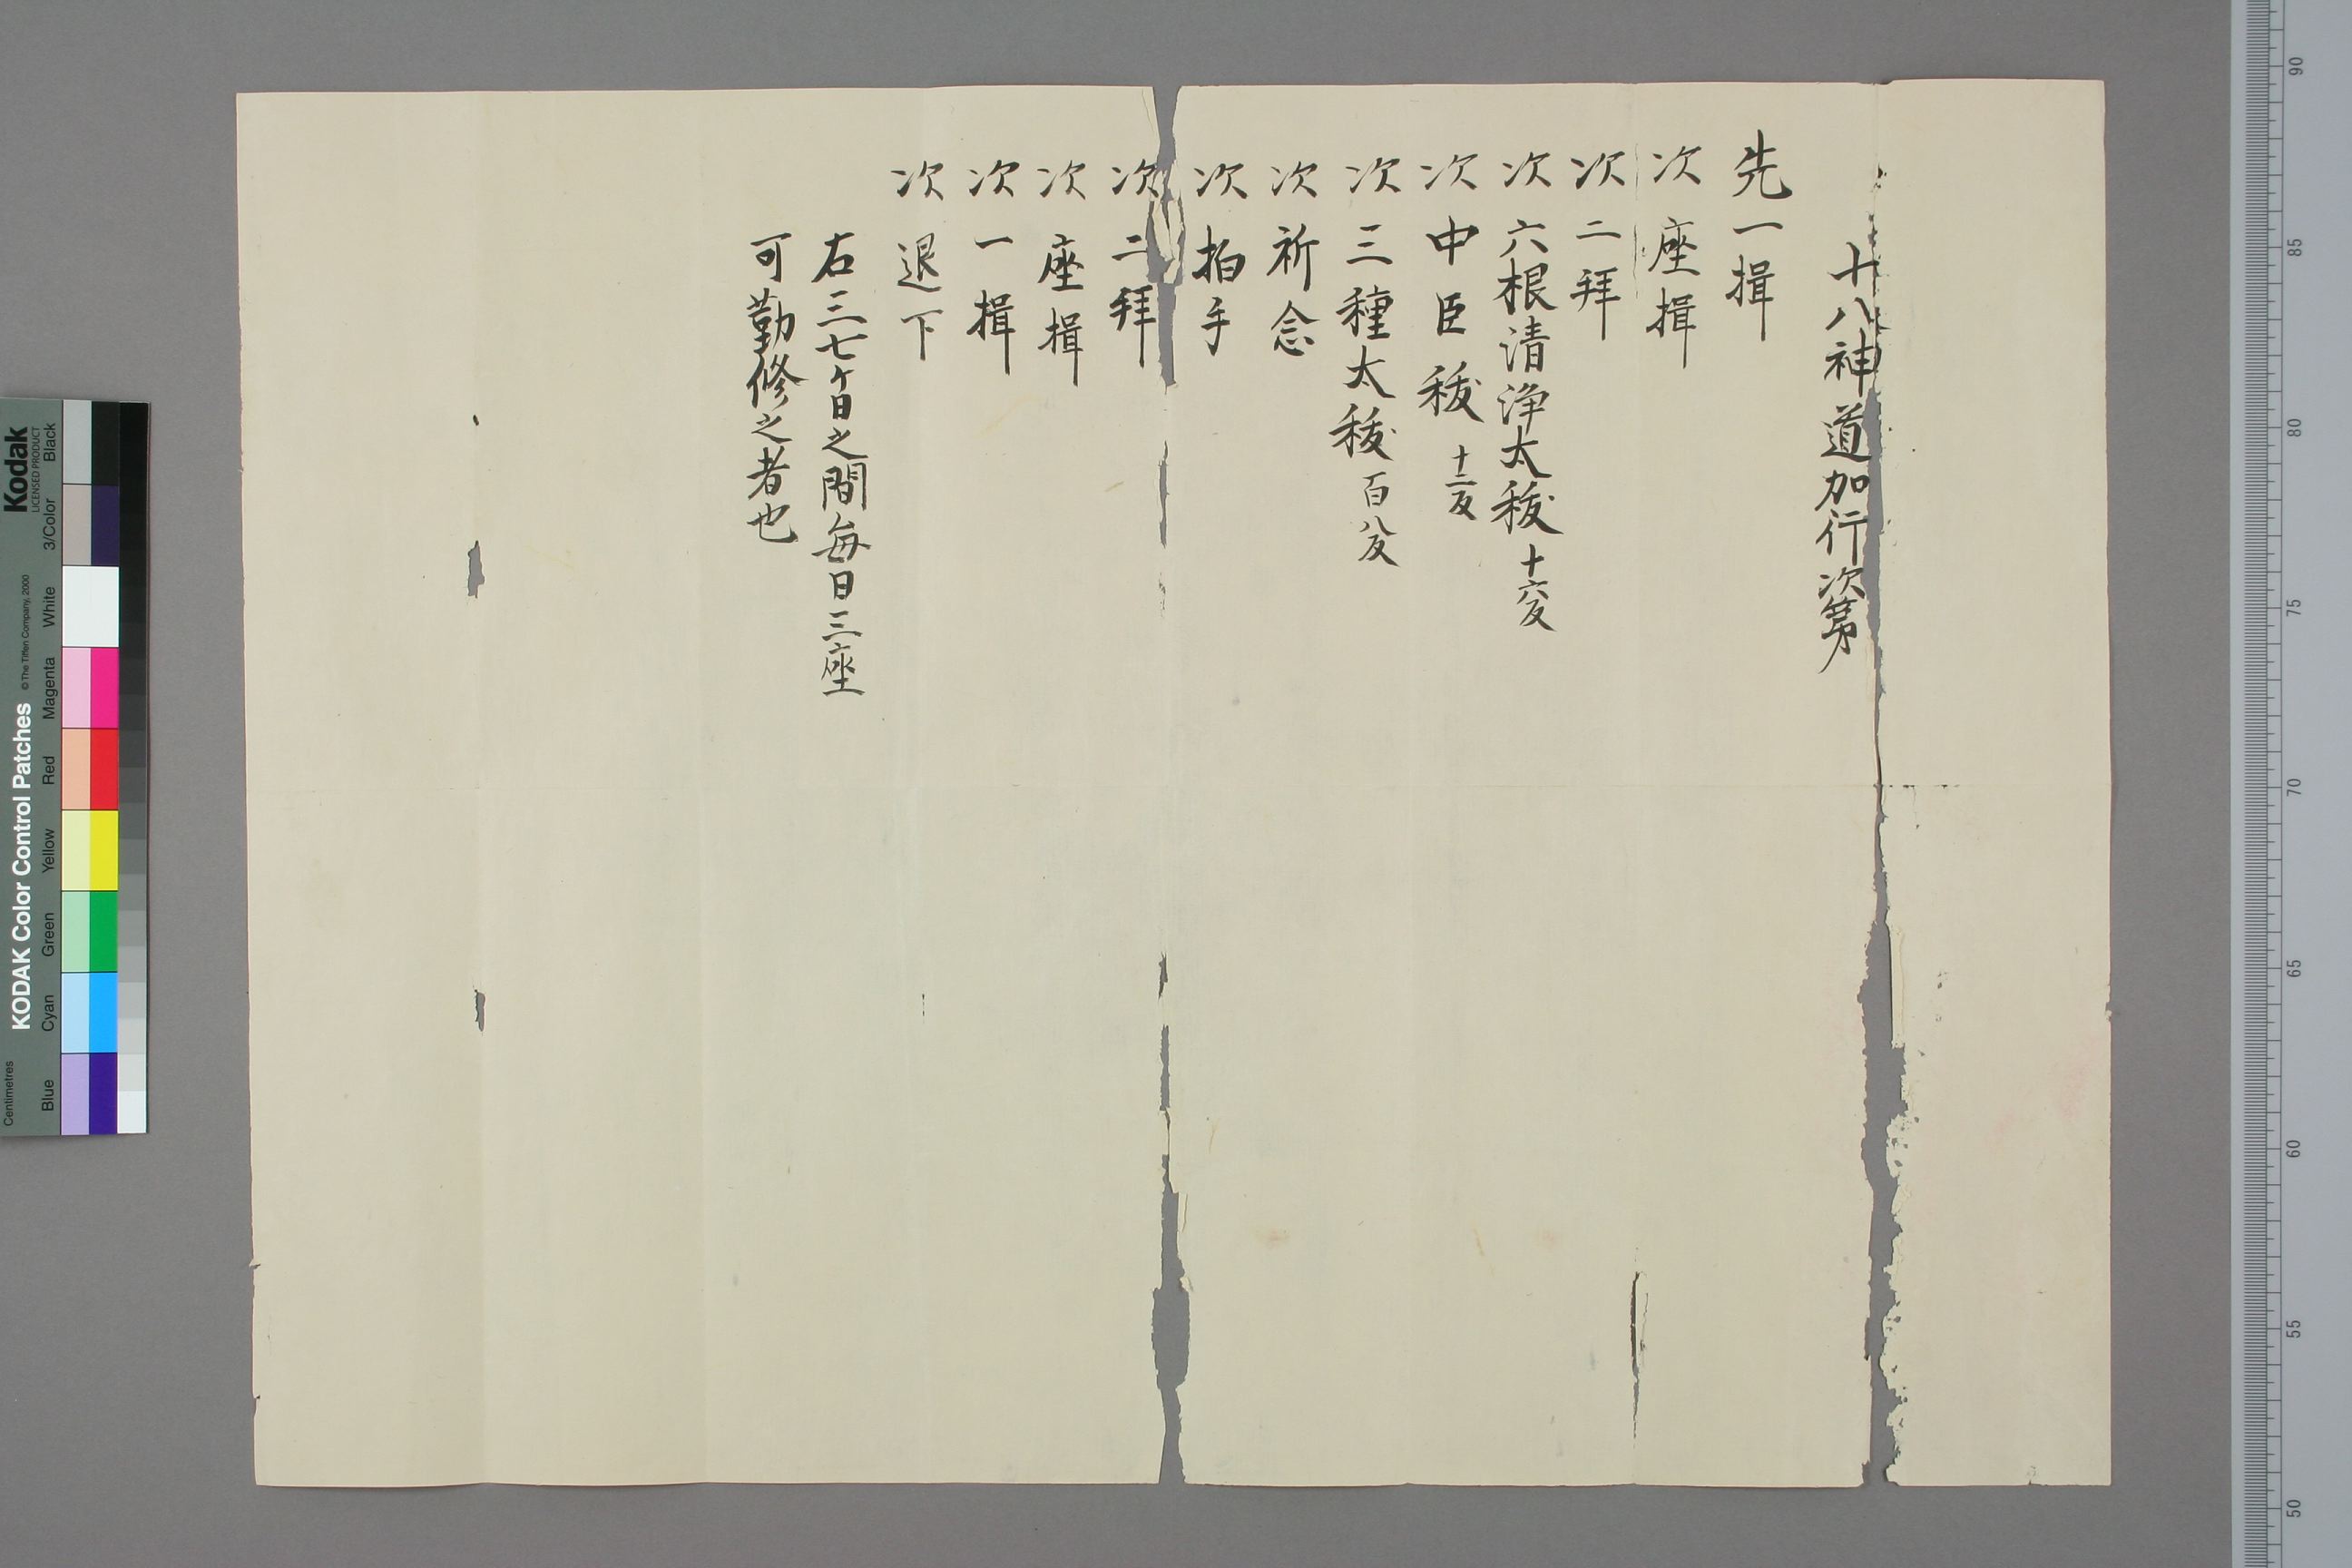 十八神道加行次第
先一揖
次座揖
次二拝
次六根清浄太秡十六反
次中臣秡十二反
次三種太秡百八反
次祈念
次拍手
次二拝
次座揖
次一揖
次退下
右三七ケ日之間毎日三座
可勤修之者也
Kodak
LICENSED PRODUCT
KODAK Color Control Patches
© The Tiffen Company, 2000
Centimetres
Blue
Cyan
Green
Yellow
Red
Magenta
White
3/Color
Black
90
85
80
75
70
65
60
55
50